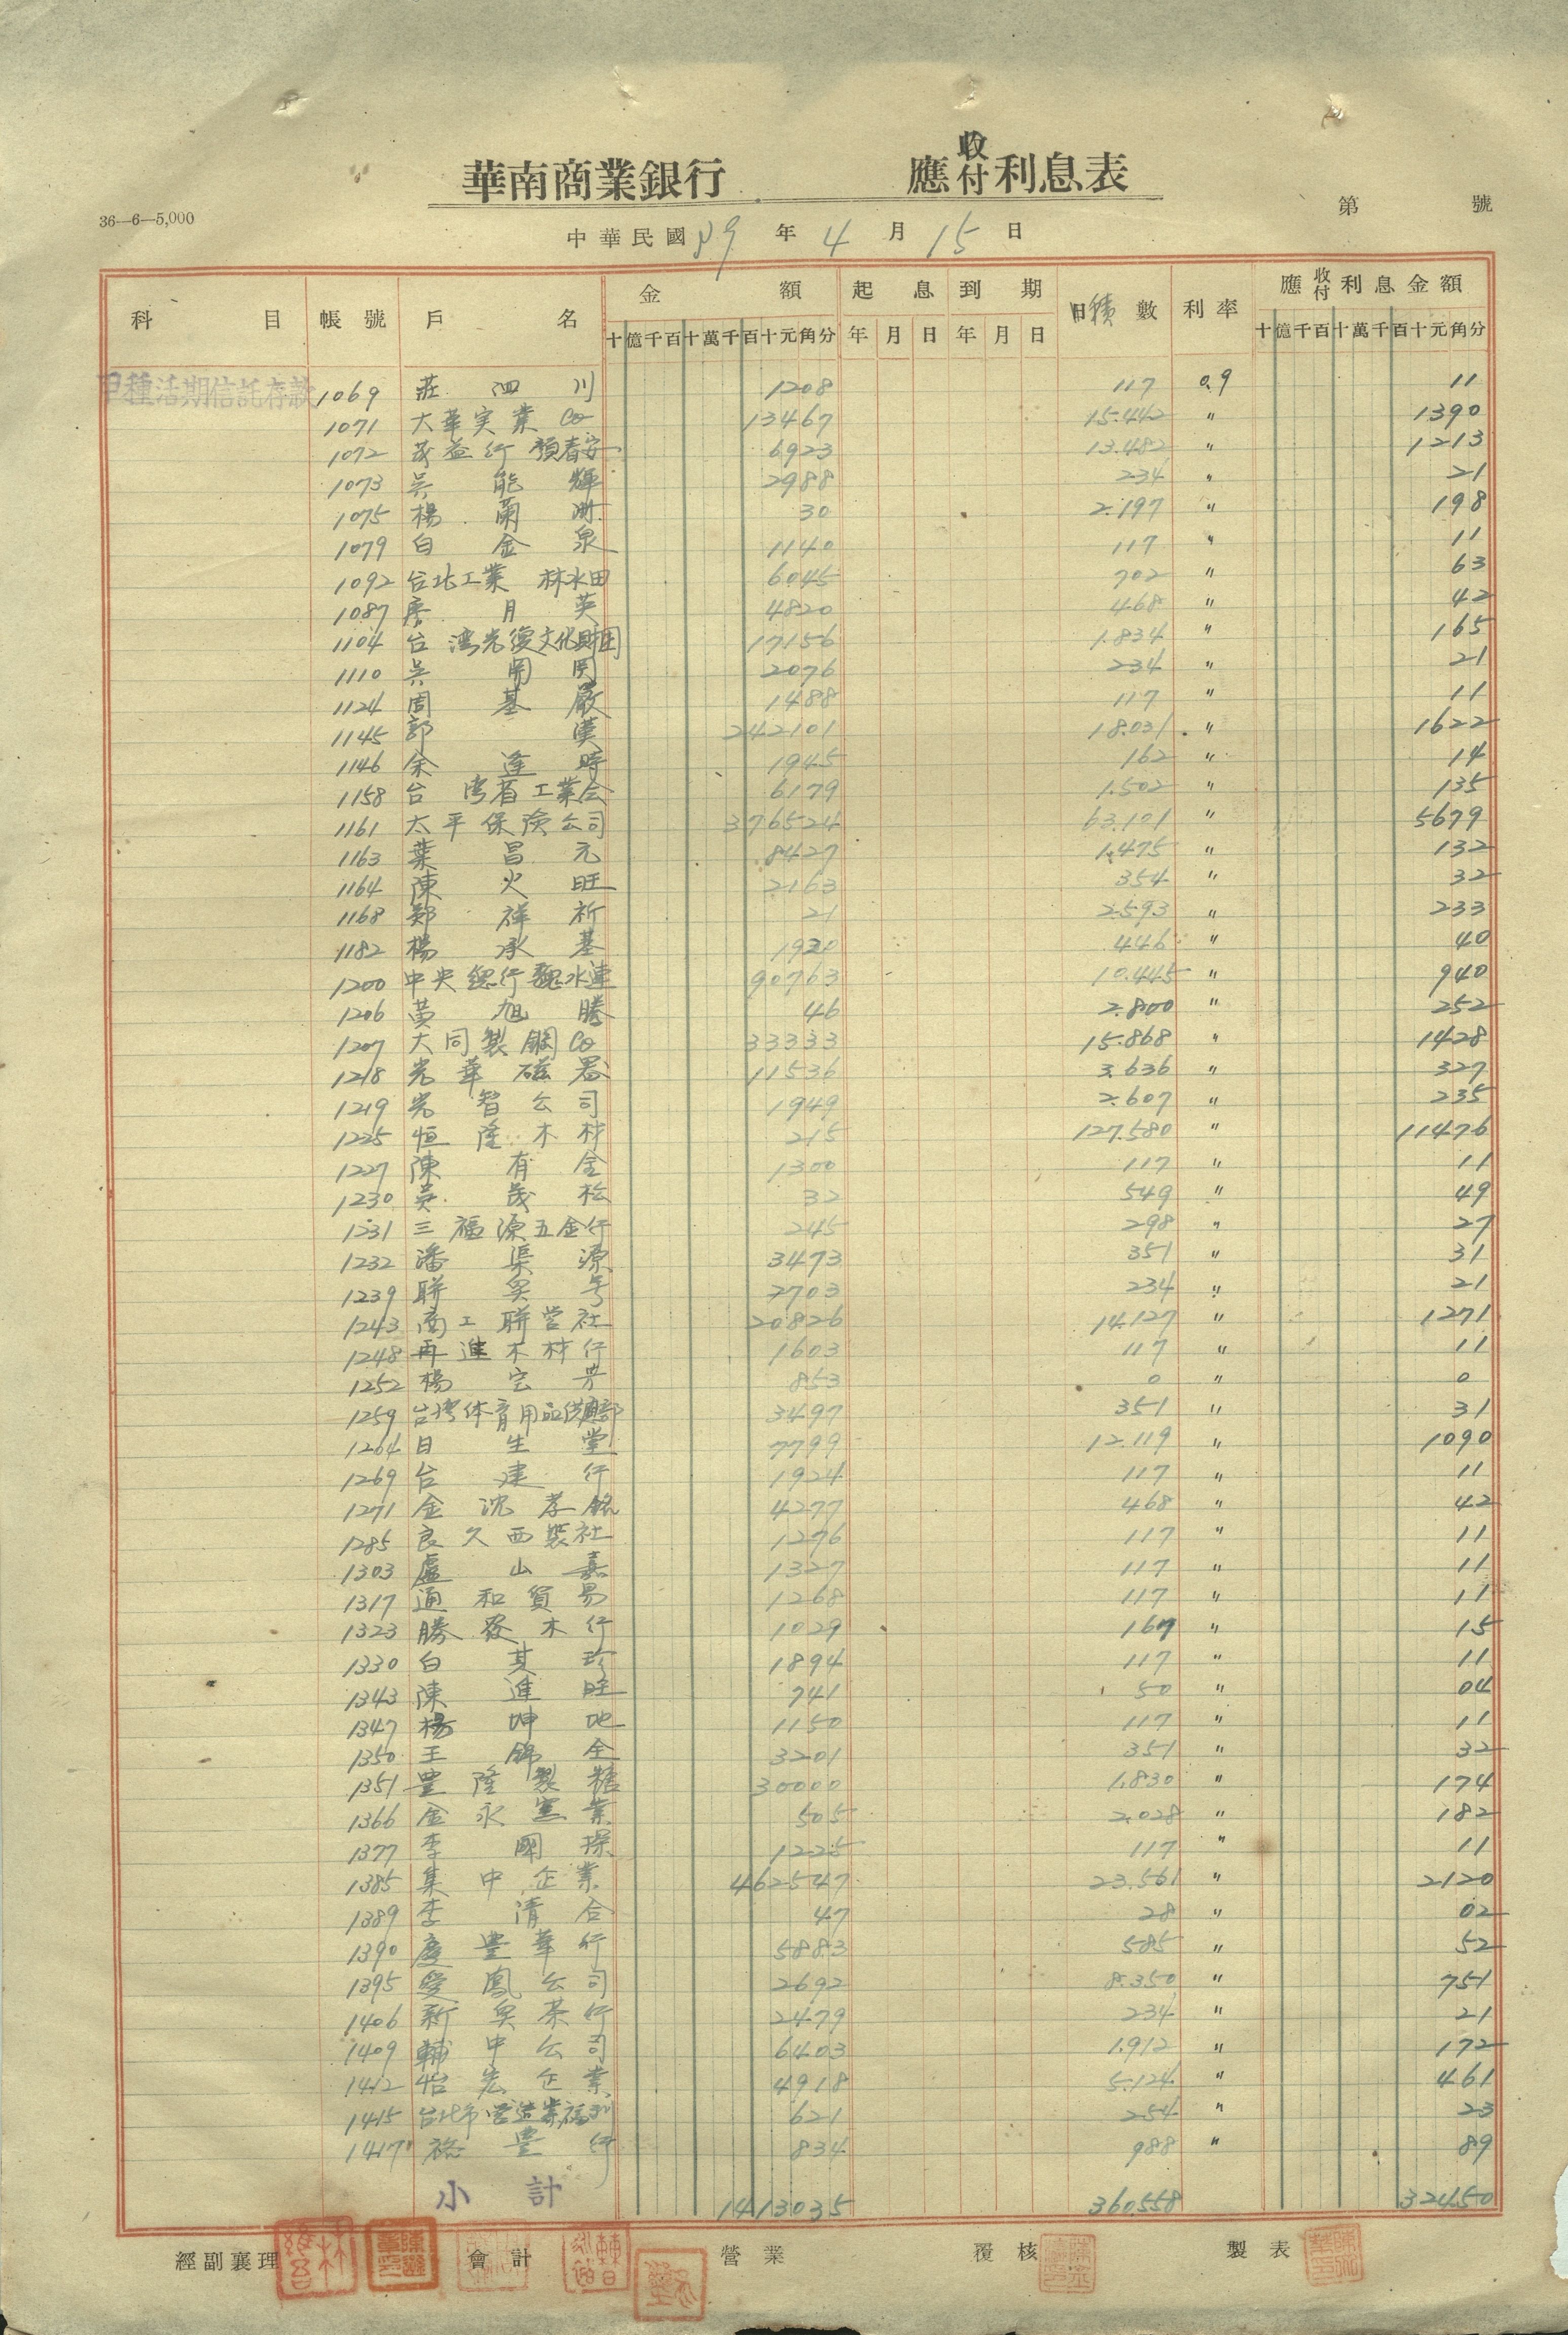 華南商業銀行 應收付利息表
36—6—5,000
第 號
中華民國 39 年 4 月 15 日
科目 帳號 戶名 金額 起息 到期 日積數 利率 應收付利息金額
十億千百十萬千百十元角分 年 月 日 年 月 日 十億千百十萬千百十元角分
甲種活期信託存款 1069 莊泗川 1208 117 0.9 11
1071 大華実業Co 13467 15.442 〃 1390
1072 茂益行 顏春安 6923 13.482 〃 1213
1073 吳能輝 2988 234 〃 21
1075 楊蘭洲 30 2.197 〃 198
1079 白金泉 1140 117 〃 11
1092 台北工業 林水田 6045 702 〃 63
1087 廖月英 4820 468 〃 42
1104 台湾光復文化財団 17156 1.834 〃 165
1110 吳 2076 234 〃 21
1124 周基嚴 1488 117 〃 11
1145 郭漢 242101 18.031 〃 1622
1146 余逢時 1945 162 〃 14
1158 台湾省工業会 6179 1.502 〃 135
1161 太平保険公司 376524 63.101 〃 5679
1163 葉昌元 8427 1.475 〃 132
1164 陳火旺 2163 354 〃 32
1168 鄭祥祈 21 2.593 〃 233
1182 楊承基 1920 446 〃 40
1200 中央銀行 魏水連 90763 10.445 〃 940
1206 黃旭騰 46 2.800 〃 252
1207 大同製鋼Co 33333 15.868 〃 1428
1218 光華磁器 11536 3.636 〃 327
1219 光智公司 1949 2.607 〃 235
1225 恒隆木材 215 127.580 〃 11476
1227 陳有全 1300 117 〃 11
1230 吳茂松 32 549 〃 49
1231 三福源五金行 245 298 〃 27
1232 潘渠源 3473 351 〃 31
1239 聯吳号 2703 234 〃 21
1243 商工聯営社 20826 14.127 〃 1271
1248 再進木材行 1603 117 〃 11
1252 楊宝芳 853 0 〃 0
1259 台湾体育用品供購部 3497 351 〃 31
1264 日生堂 7799 12.119 〃 1090
1269 台建行 1924 117 〃 11
1271 金沈孝銘 4277 468 〃 42
1285 良久西裝社 1276 117 〃 11
1303 盧山嘉 1327 117 〃 11
1317 通和貿易 1268 117 〃 11
1323 勝發木行 1029 167 〃 15
1330 白其珍 1894 117 〃 11
1343 陳進旺 741 50 〃 04
1347 楊坤地 1150 117 〃 11
1350 王錦全 3201 351 〃 32
1351 豊隆製糖 30000 1.830 〃 174
1366 金永窯業 505 2.028 〃 182
1377 李 1225 117 〃 11
1385 集中企業 462547 23.561 〃 2120
1389 李清合 47 28 〃 02
1390 慶豊華行 5883 585 〃 52
1395 愛鳳公司 2692 8.350 〃 751
1406 新吳茶行 2479 234 〃 21
1409 輔中公司 6403 1.912 〃 172
1412 怡宏企業 4918 5.124 〃 461
1415 台北市営造業 621 254 〃 23
1417 裕豊行 834 988 〃 89
小計 1413035 360.558 32450
經副襄理 會計 營業 覆核 製表